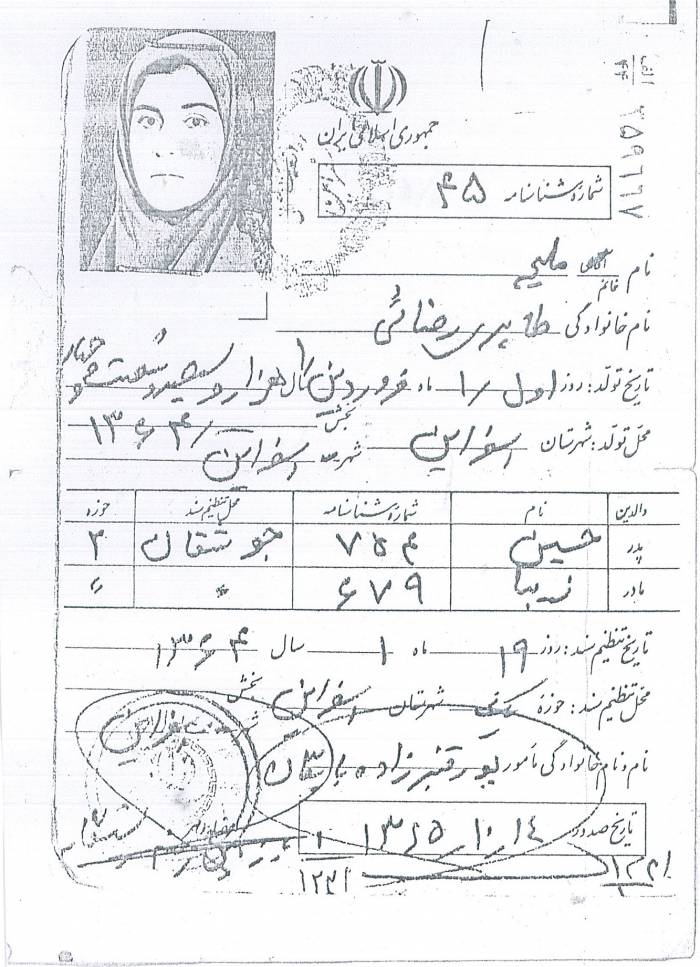 الف
۴۴
۲۵۹۶۶۷
جمهوری اسلامی ایران
شماره شناسنامه ۴۵
نام آقای خانم ملیحه
نام خانوادگی طاهری رضائی
تاریخ تولد : روز اول /۱ ماه فروردین سال هزار و سیصد و شصت و چهار
۱۳۶۴/
محل تولد : شهرستان اسفراین بخش
شهر اسفراین
والدین نام شماره شناسنامه محل تنظیم سند حوزه
پدر حسین ۷۵۴ جوشقان ۲
مادر زیبا ۶۷۹ " "
تاریخ تنظیم سند : روز ۱۹ ماه ۱ سال ۱۳۶۴
محل تنظیم سند : حوزه شهرستان اسفراین بخش
نام و نام خانوادگی مأمور
تاریخ صدور ۱۳۶۵/۱۰/۱۴